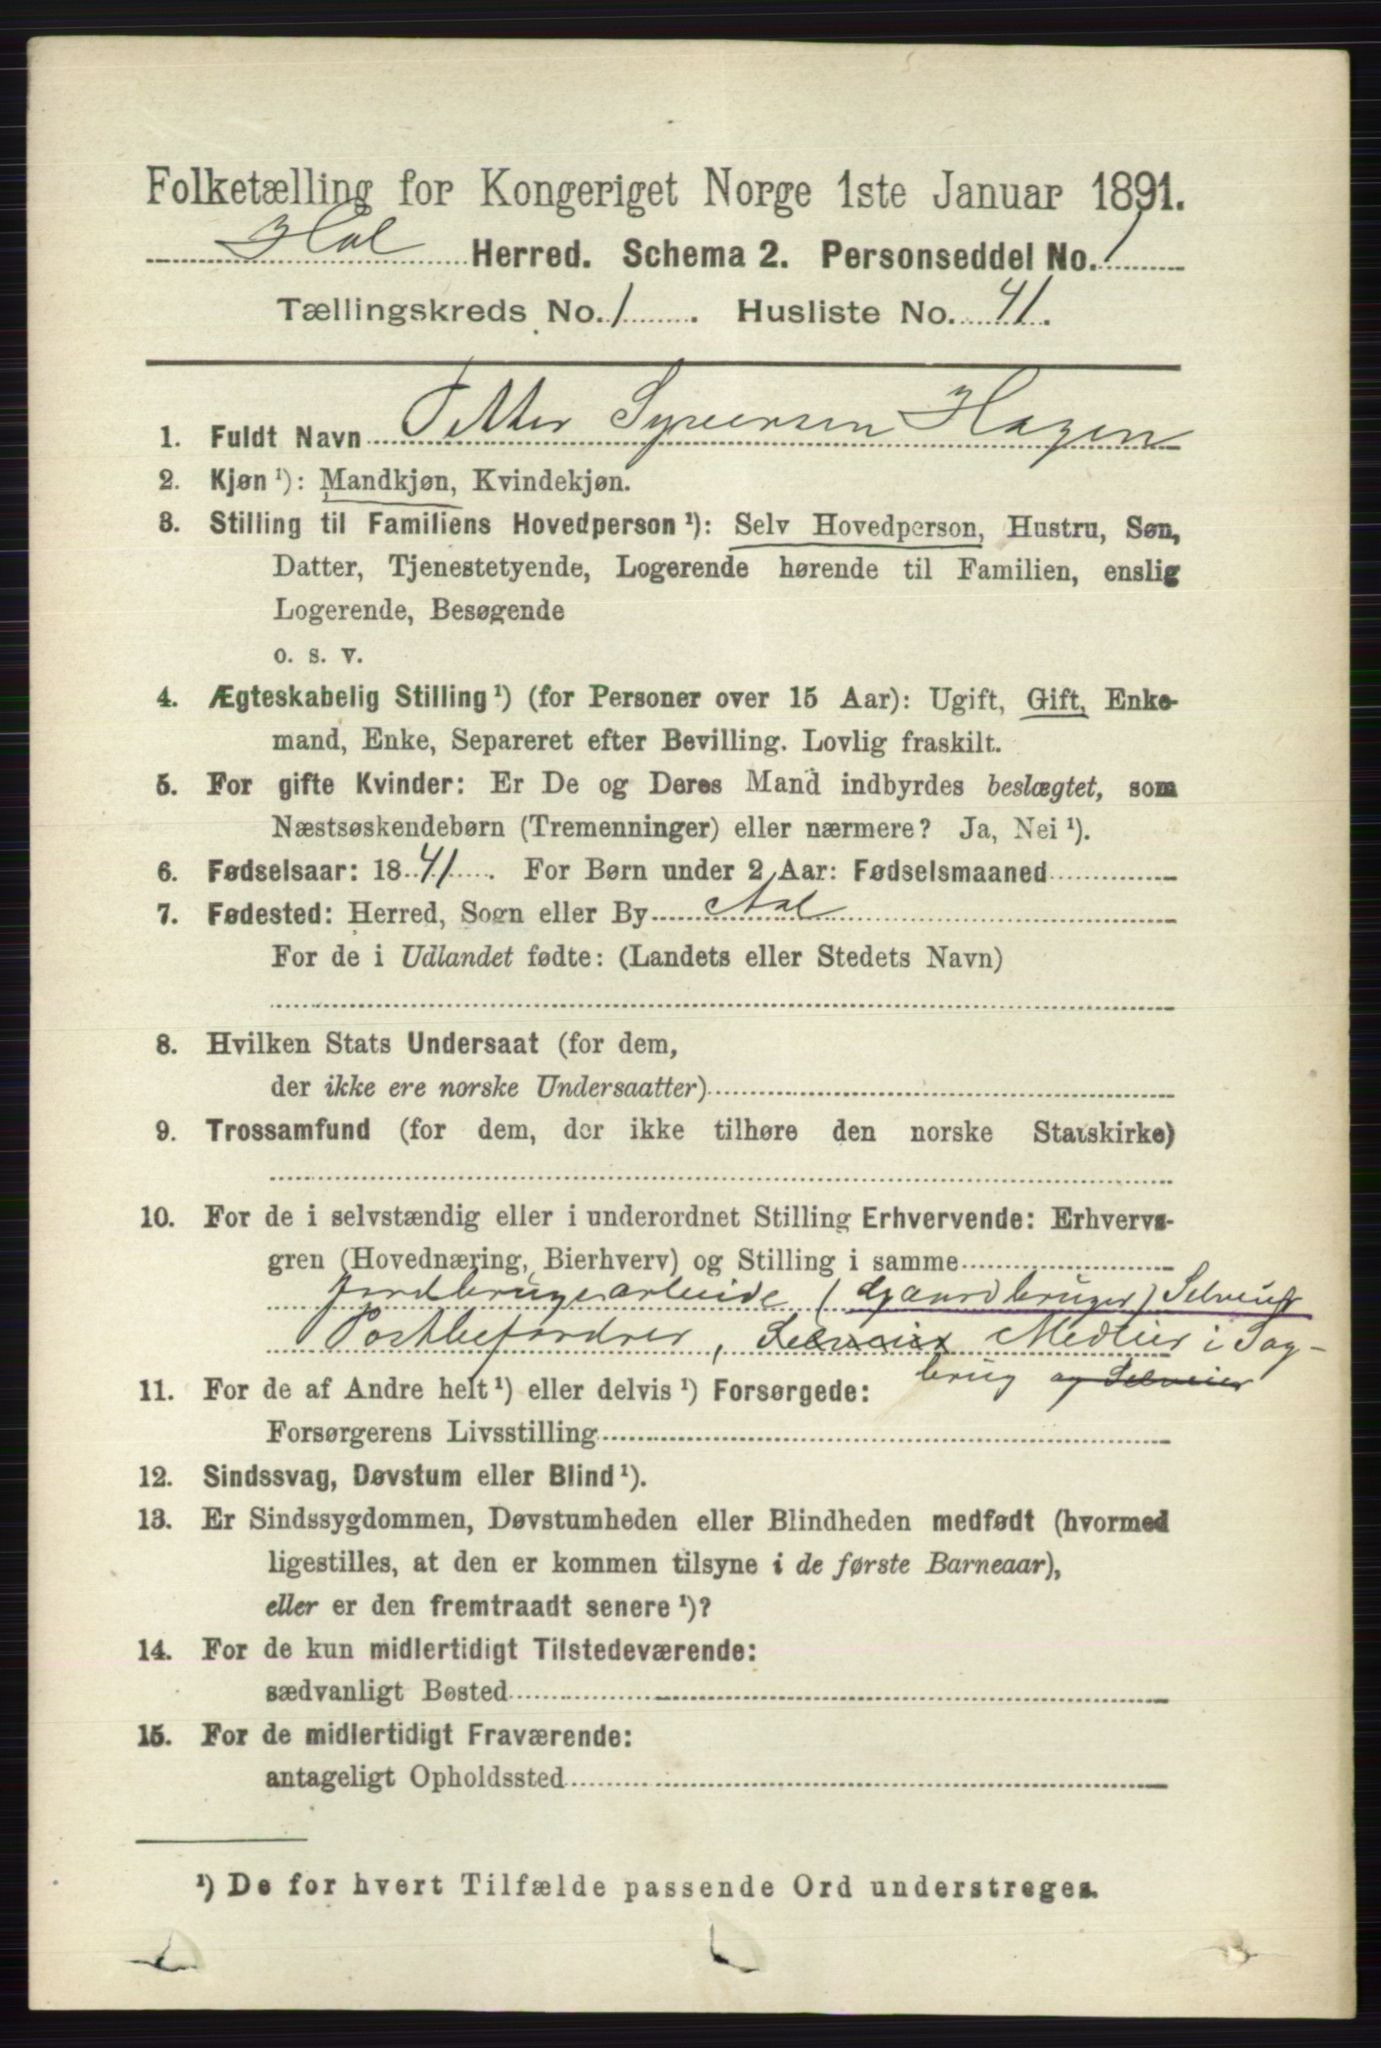 Folketælling for Kongeriget Norge 1ste Januar 1891.
Hol Herred. Schema 2. Personseddel No. 1
Tællingskreds No. 1. Husliste No. 41.
1. Fuldt Navn Petter Syversen Hagen
2. Kjøn ¹): Mandkjøn, Kvindekjøn.
3. Stilling til Familiens Hovedperson ¹): Selv Hovedperson, Hustru, Søn,
Datter, Tjenestetyende, Logerende hørende til Familien, enslig
Logerende, Besøgende
o. s. v.
4. Ægteskabelig Stilling ¹) (for Personer over 15 Aar): Ugift, Gift, Enke-
mand, Enke, Separeret efter Bevilling. Lovlig fraskilt.
5. For gifte Kvinder: Er De og Deres Mand indbyrdes beslægtet, som
Næstsøskendebørn (Tremenninger) eller nærmere? Ja, Nei ¹).
6. Fødselsaar: 1841. For Børn under 2 Aar: Fødselsmaaned
7. Fødested: Herred, Sogn eller By Aal
For de i Udlandet fødte: (Landets eller Stedets Navn)
8. Hvilken Stats Undersaat (for dem,
der ikke ere norske Undersaatter)
9. Trossamfund (for dem, der ikke tilhøre den norske Statskirke)
10. For de i selvstændig eller i underordnet Stilling Erhvervende: Erhvervs-
gren (Hovednæring, Bierhverv) og Stilling i samme
Jordbrugsarbeide (Gaardbruger) Selveier
Postbefordrer, Selveier Medeier i Sag-
brug og Selveier
11. For de af Andre helt ¹) eller delvis ¹) Forsørgede:
Forsørgerens Livsstilling
12. Sindssvag, Døvstum eller Blind ¹).
13. Er Sindssygdommen, Døvstumheden eller Blindheden medfødt (hvormed
ligestilles, at den er kommen tilsyne i de første Barneaar),
eller er den fremtraadt senere ¹)?
14. For de kun midlertidigt Tilstedeværende:
sædvanligt Bosted
15. For de midlertidigt Fraværende:
antageligt Opholdssted
¹) De for hvert Tilfælde passende Ord understreges.